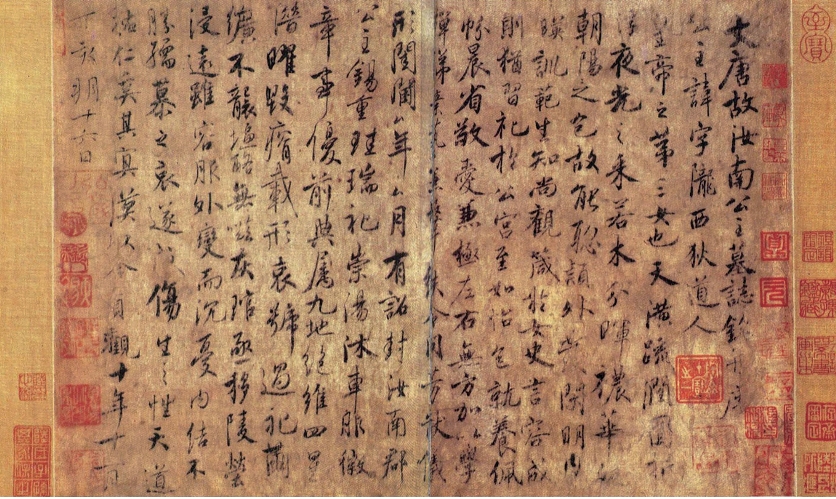 大唐故汝南公主墓誌銘并序
公主諱字隴西狄道人
皇帝之第三女也天潢疏潤圓折
浮夜光之采若木分暉穠華照
朝陽之色故能聰穎外發閑明内
暎訓範生知尚觀箴於女史言容成
則猶習礼於公宮至如怡色就養佩
帉晨省敬愛兼極左右無方加以學
殫綈素藝兼鞶紈令問芳猷儀
形閨閫厶年厶月有詔封汝南郡
公主錫重珪瑞礼崇湯沐車服徽
章事優前典屬九地絕維四星
潛曜毀瘠載形哀號過礼繭
纊不襲塩酪無嗞灰琯亟移陵塋
浸遠雖容服外變而沉憂内結不
勝孺慕之哀遂成傷生之性天道
祐仁奚其冥漠以今貞觀十年十一月
丁亥朔十六日